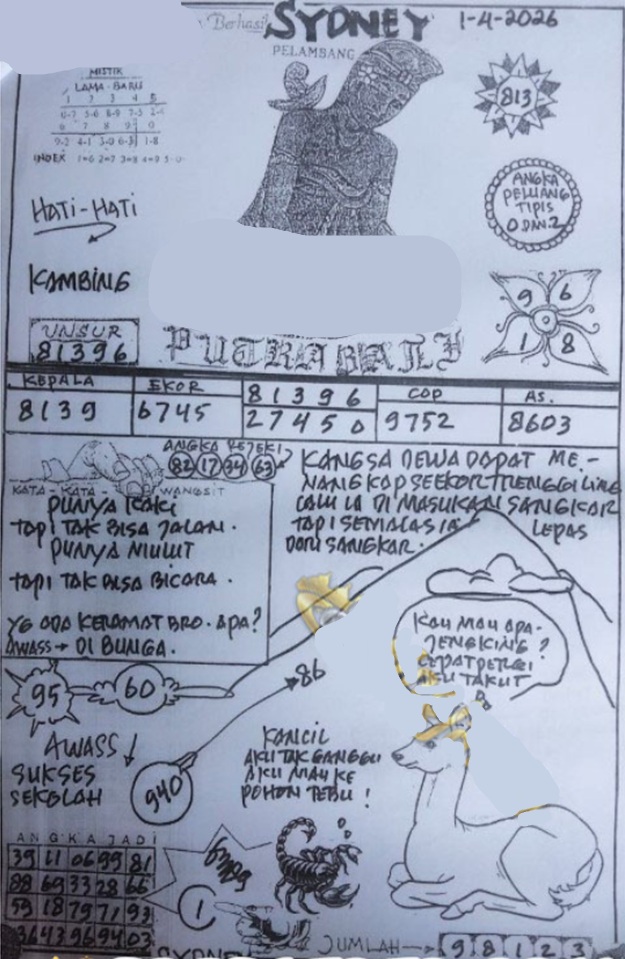 Berhasil SYDNEY 1-4-2026
PELAMBANG
MISTIK
LAMA - BARU
1 2 3 4 5
0-7 5-6 8-9 7-5 2-
6 7 8 9 0
9-2 4-1 3-0 6-3 1-8
INDEX 1=6 2=7 3=8 4=9 5-0
813
ANGKA
PELUANG
TIPIS
0 DAN 2
HATI-HATI
KAMBING
9 6
1 8
UNSUR
81396
PUTRA BALI
KEPALA
8139
EKOR
6745
81396
27450
COP
9752
AS.
8603
ANGKA REJEKI
82 17 34 63
KATA - KATA - WANGSIT
PUNYA KAKI
TAPI TAK BISA JALAN.
PUNYA MULUT
TAPI TAK BISA BICARA.
YG ADA KERAMAT BRO. APA?
AWASS → DI BUNGA.
KANGSA DEWA DAPAT ME-
NANGKAP SEEKOR TRENGGILING
LALU IA DI MASUKAN SANGKAR
TAPI SEMALAS IA LEPAS
DARI SANGKAR.
KAU MAU APA-
JENGKING?
CEPAT PERGI
AKU TAKUT
95
60
86
940
AWASS ↓
SUKSES
SEKOLAH
KANCIL
AKU TAK GANGGU
AKU MAU KE
POHON TEBU!
ANGKA JADI
39 11 06 99 81
88 69 33 28 66
59 18 79 71 93
36 43 96 94 03
1
SYDNEY
JUMLAH → 9 8 1 2 3